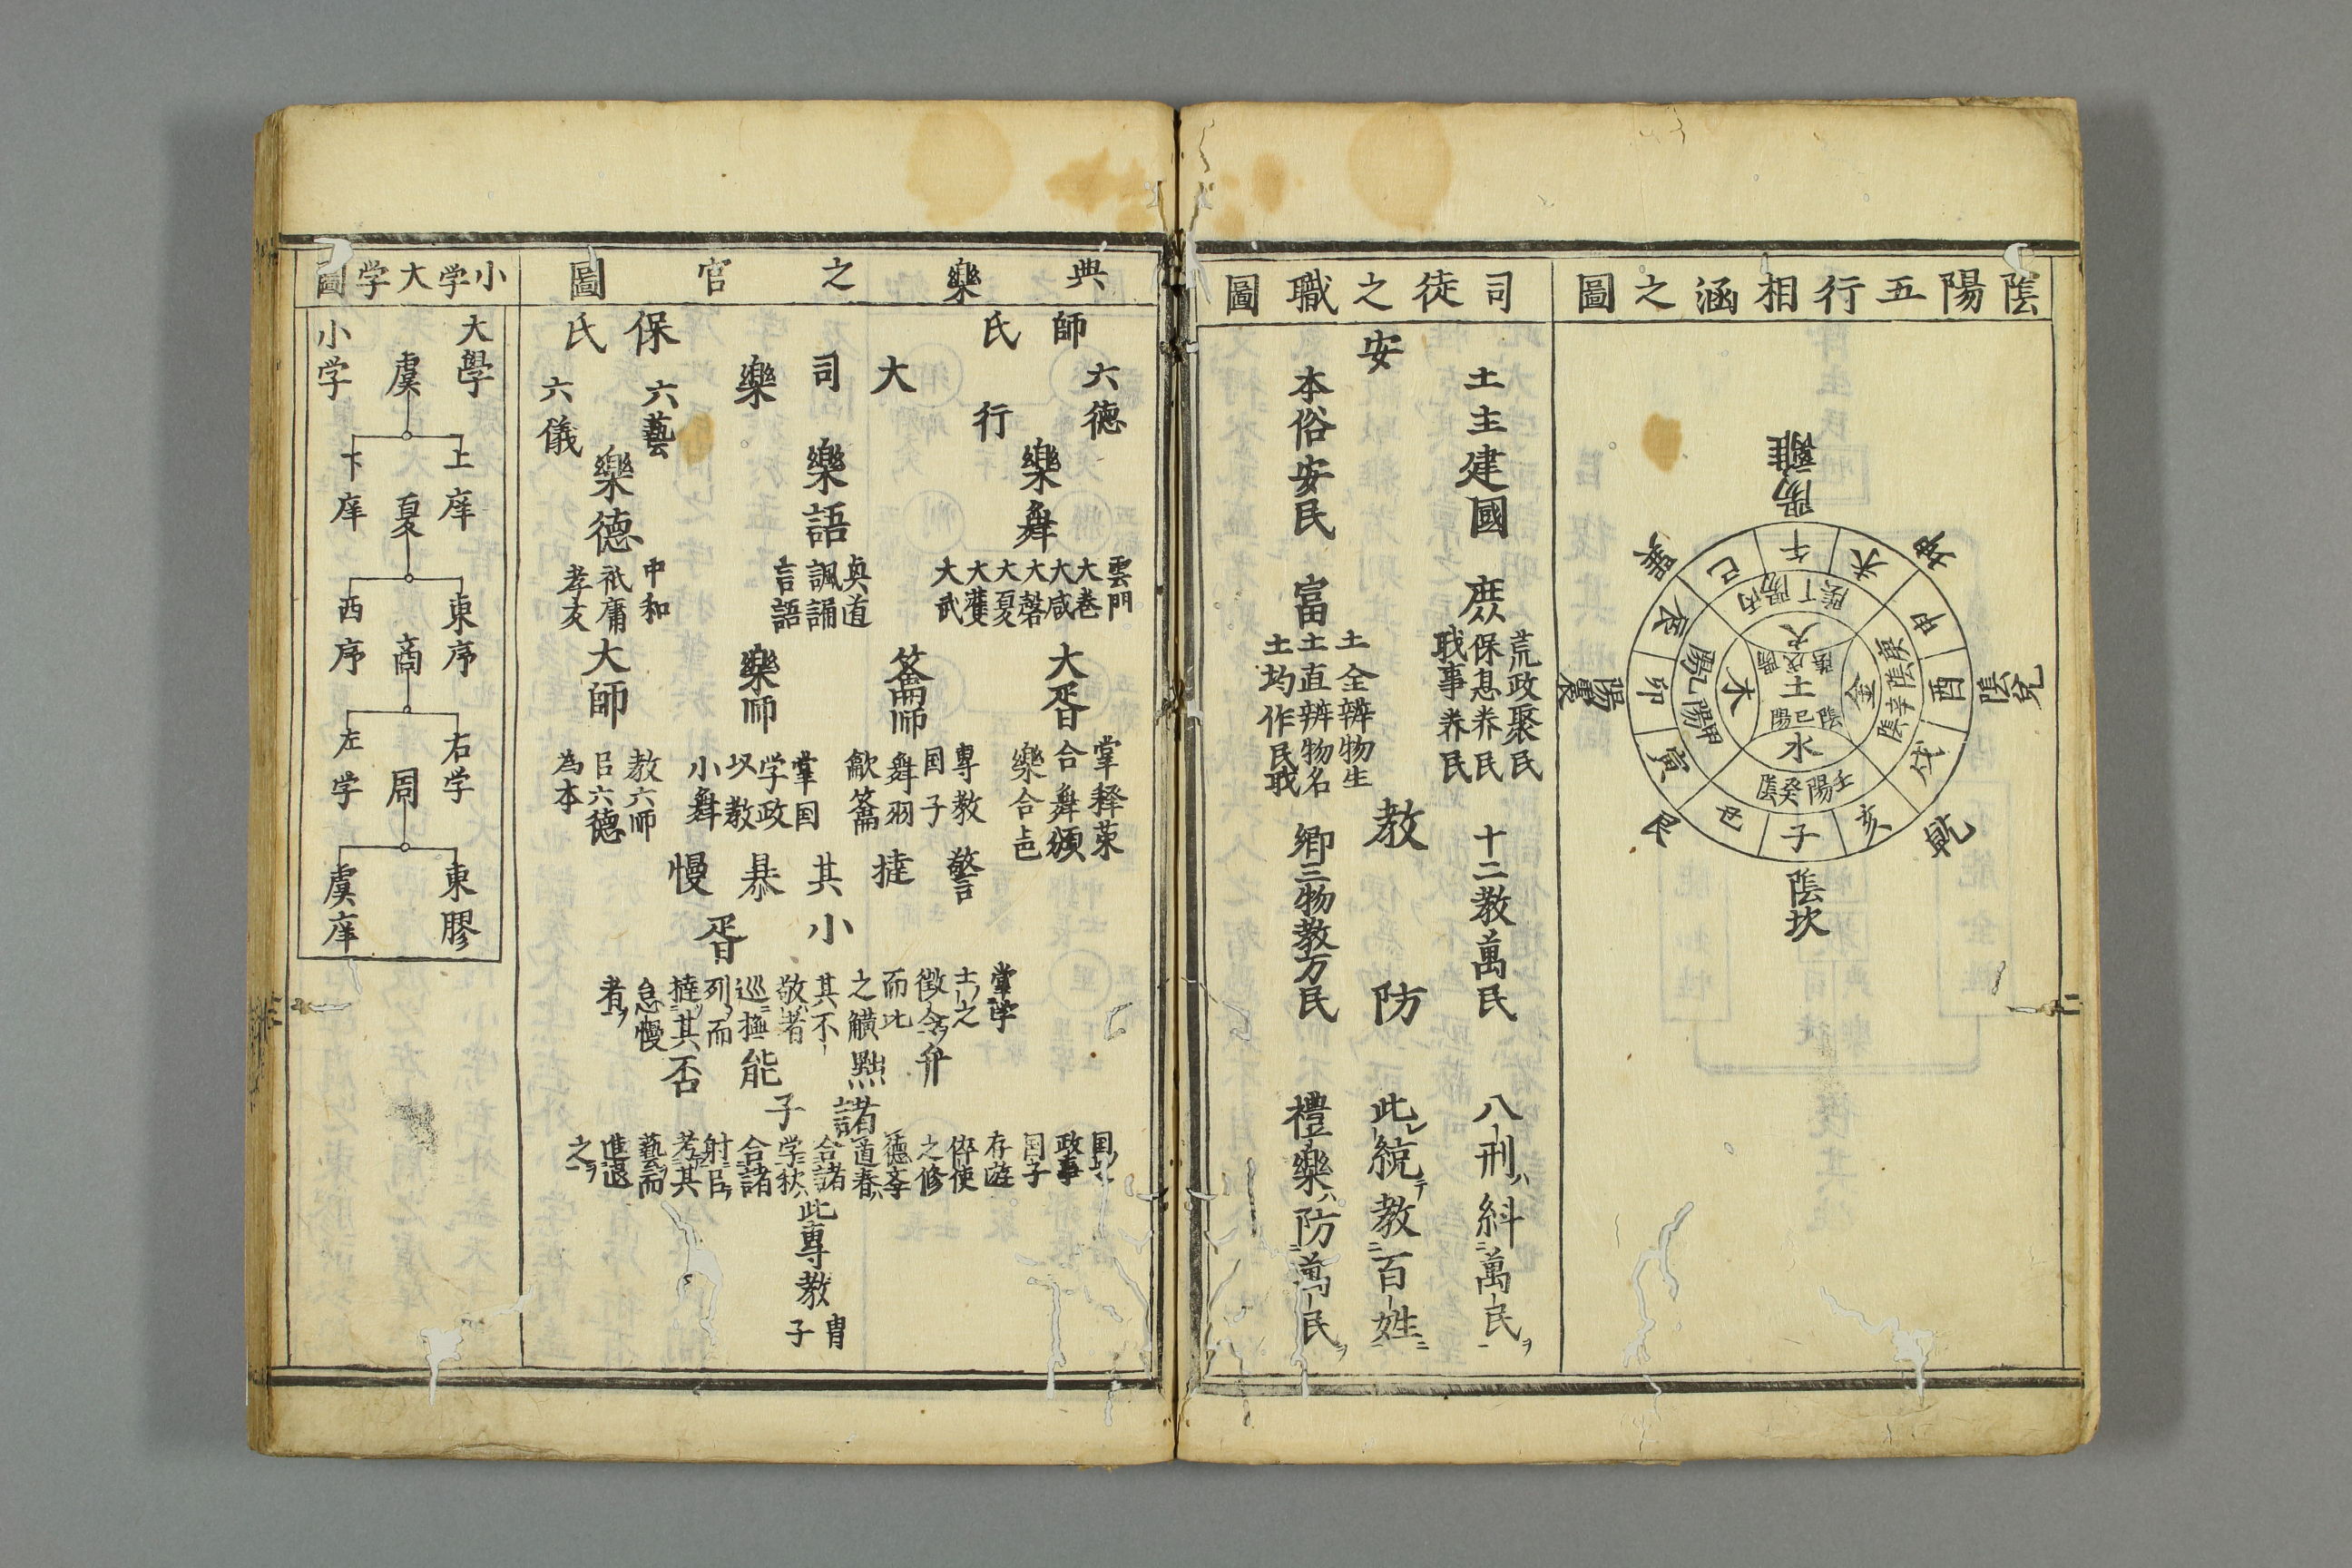 陰陽五行相涵之圖
陽離
坤
陰兌
乾
陰坎
艮
陽震
巽
午
未
申
酉
戌
亥
子
丑
寅
卯
辰
巳
丙陽丁陰
庚陰辛陰
壬陽癸陰
甲陽乙陽
火
金
水
木
土
陽戊陰
陽己陰
二
司徒之職圖
土主建國
庶
荒政聚民
保息养民
戢事养民
十二教萬民
八刑ハ糾萬民ヲ
安
教
防
此統テ教百姓
本俗安民
富
土全辨物生
土直辨物名
土均作民戢
鄉三物教万民
禮樂ハ防萬民ヲ
典樂之官圖
師氏
六德
行
大司樂
保氏
六藝
六儀
樂舞
雲門
大卷
大咸
大磬
大夏
大濩
大武
樂語
具道
諷誦
言語
樂德
中和
祇庸
孝友
大胥
掌釋菜
合舞頒
樂合色
籥師
專教
国子
舞羽
龡籥
樂师
掌国
学政
以教
小舞
大師
教六师
㠯六德
為本
警撻其㳟慢
小胥
掌学
士之
徴令
而比
之觵
其不
敬者
巡舞
列而
撻其
怠慢
者
弁點能否
諸子
政事
国子
存遊
倅使
之修
德李
道春
合諸
学秋
合諸
射㠯
考其
藝而
進退
之
此專教冑子
小学大学圖
大學
小学
虞
上庠
下庠
夏
東序
西序
商
右学
左学
周
東膠
虞庠